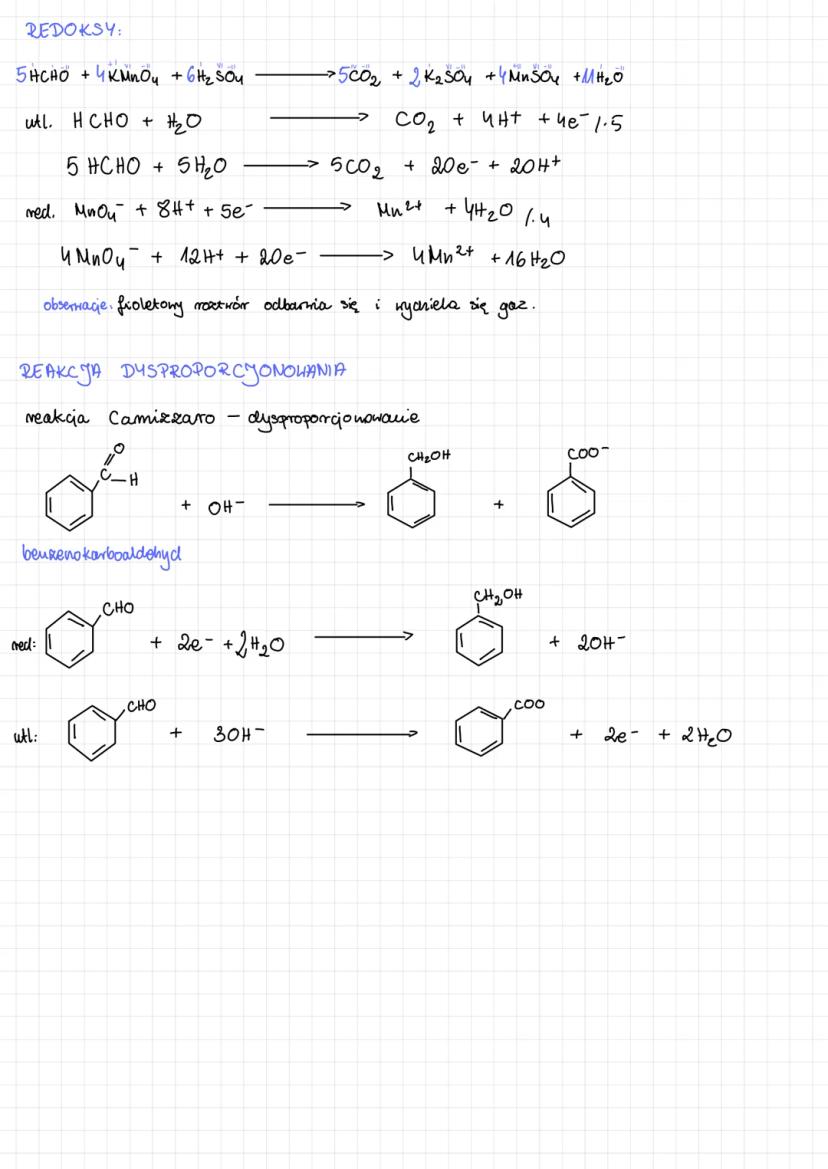 REDOKSY:
5HCHO + 4KMnO₄ + 6H₂SO₄ ⟶ 5CO₂ + 2K₂SO₄ + 4MnSO₄ + 11H₂O
utl. HCHO + H₂O ⟶ CO₂ + 4H+ + 4e⁻ /·5
5 HCHO + 5H₂O ⟶ 5CO₂ + 20e⁻ + 20H⁺
red. MnO₄⁻ + 8H⁺ + 5e⁻ ⟶ Mn²⁺ + 4H₂O /·4
4MnO₄⁻ + 12H+ + 20e⁻ ⟶ 4Mn²⁺ + 16H₂O
obserwacje: fioletowy roztwór odbarwia się i wydziela się gaz.
REAKCJA DYSPROPORCJONOWANIA
reakcja Camizzaro – dysproporcjonowanie
O
C–H
+ OH⁻ ⟶ CH₂OH + COO⁻
benzenokarboaldehyd
red: CHO + 2e⁻ + 2H₂O ⟶ CH₂OH + 2OH⁻
utl: CHO + 3OH⁻ ⟶ COO + 2e⁻ + 2H₂O